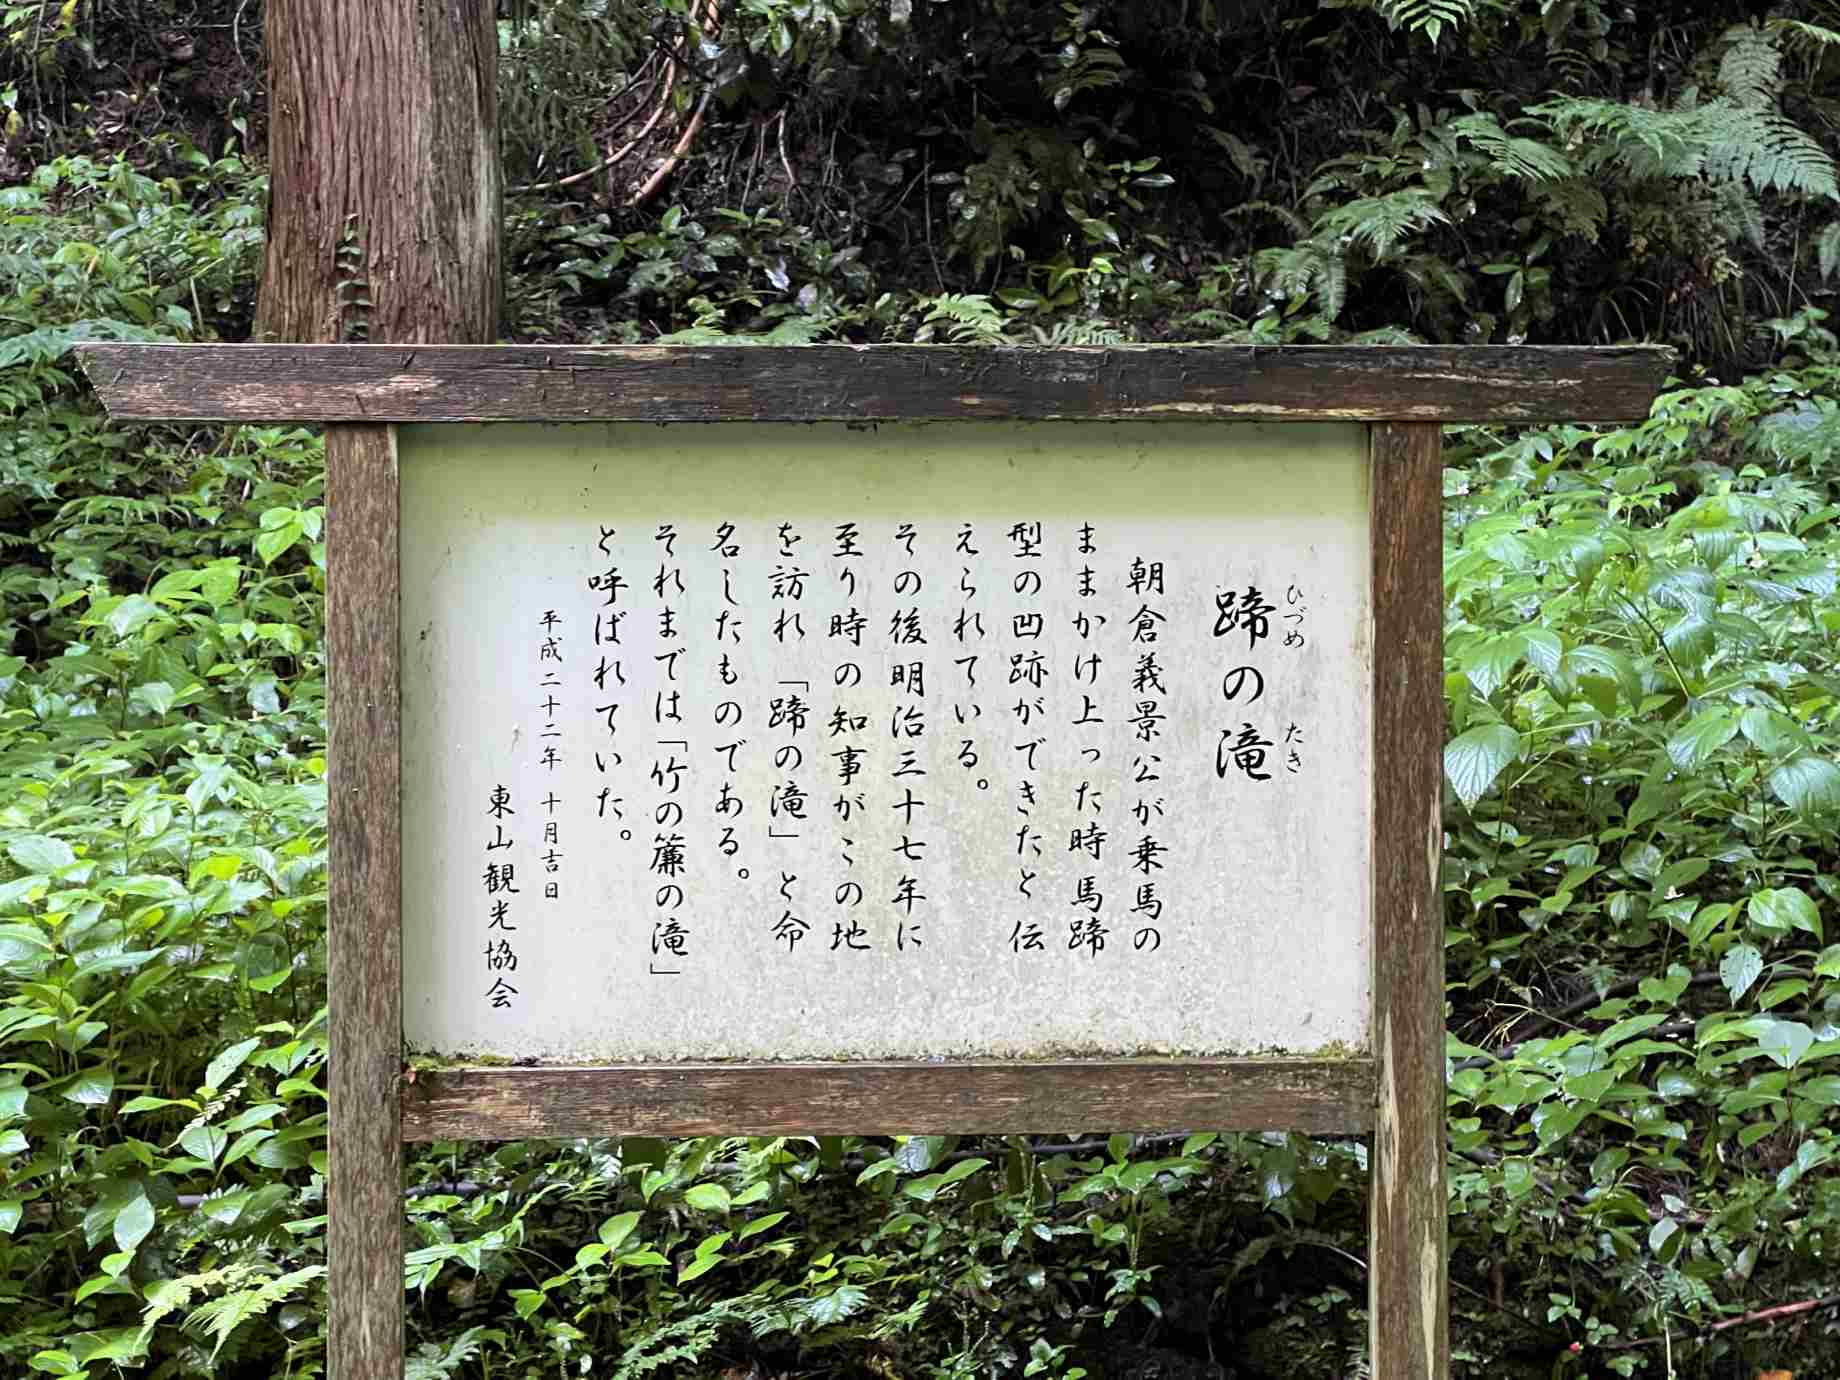 蹄の滝
ひづめ
たき
朝倉義景公が乗馬の
ままかけ上った時馬蹄
型の凹跡ができたと伝
えられている。
その後明治三十七年に
至り時の知事がこの地
を訪れ「蹄の滝」と命
名したものである。
それまでは「竹の簾の滝」
と呼ばれていた。
平成二十二年 十月吉日
東山観光協会